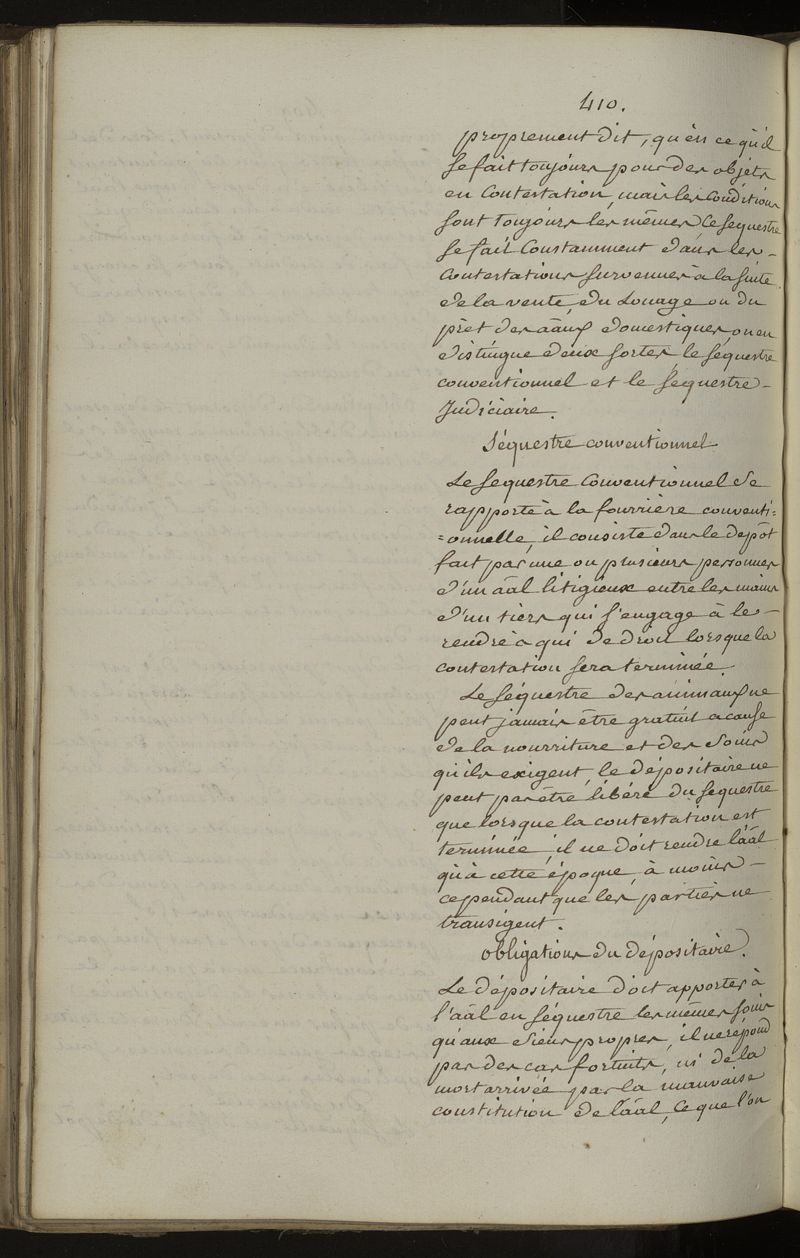 410.
proprement dit, qu'en ce qu'il
se fait toujours pour des objets
en Contestation, mais les Conditions
sont toujours les mêmes, Ce sequestre
se fait Constamment dans les -
Contestations survenues à la suite
de la vente, du Louage ou du
prêt des aãux domestiques, on en
distingue deux sortes, le sequestre
conventionnel et le sequestre -
Judiciaire.
Séquestre conventionnel
Le sequestre Conventionnel se
rapporte à la fourrière conventi=
=onnelle, il consiste dans le depôt
fait par une ou plusieurs personnes
d'un aãl litigieux entre les mains
d'un tiers qui s'engage à le -
rendre à qui de droit lorsque la
contestation sera terminée.
Le séquestre des animaux ne
peut jamais être gratuit a cause
de la nourriture et des soins
qu'ils exigent, le dépositaire ne
peut pas être libéré du sequestre
que lorsque la contestation est
terminée, il ne doit rendre l'aãl
qu'à cette époque, à moins -
cependant que les parties ne
transigent.
obligations du dépositaire.
Le dépositaire doit apporter à
l'aãl en séquestre les mêmes soins
qu'aux siens propres, il ne répond
pas des cas fortuits, ni de la
mort arrivée par la mauvaise
constitution de l'aãl, Ce que l'on